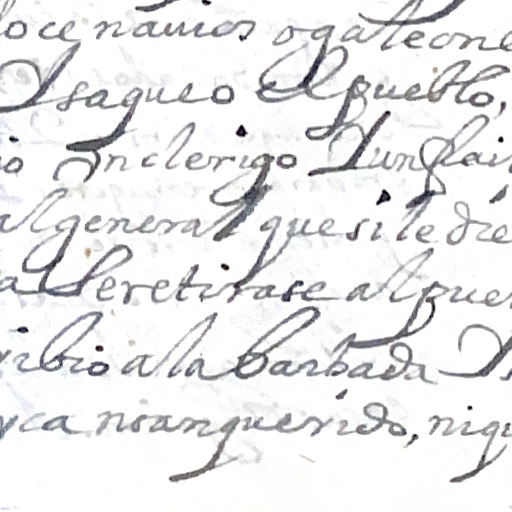 doce nauios o galeone
Ysaqueo el pueblo,
io Vn clerigo Yun flai
al general que si le die
a Se retirase al puer
ribio a la barbada Y
ca nsan querido, niqu